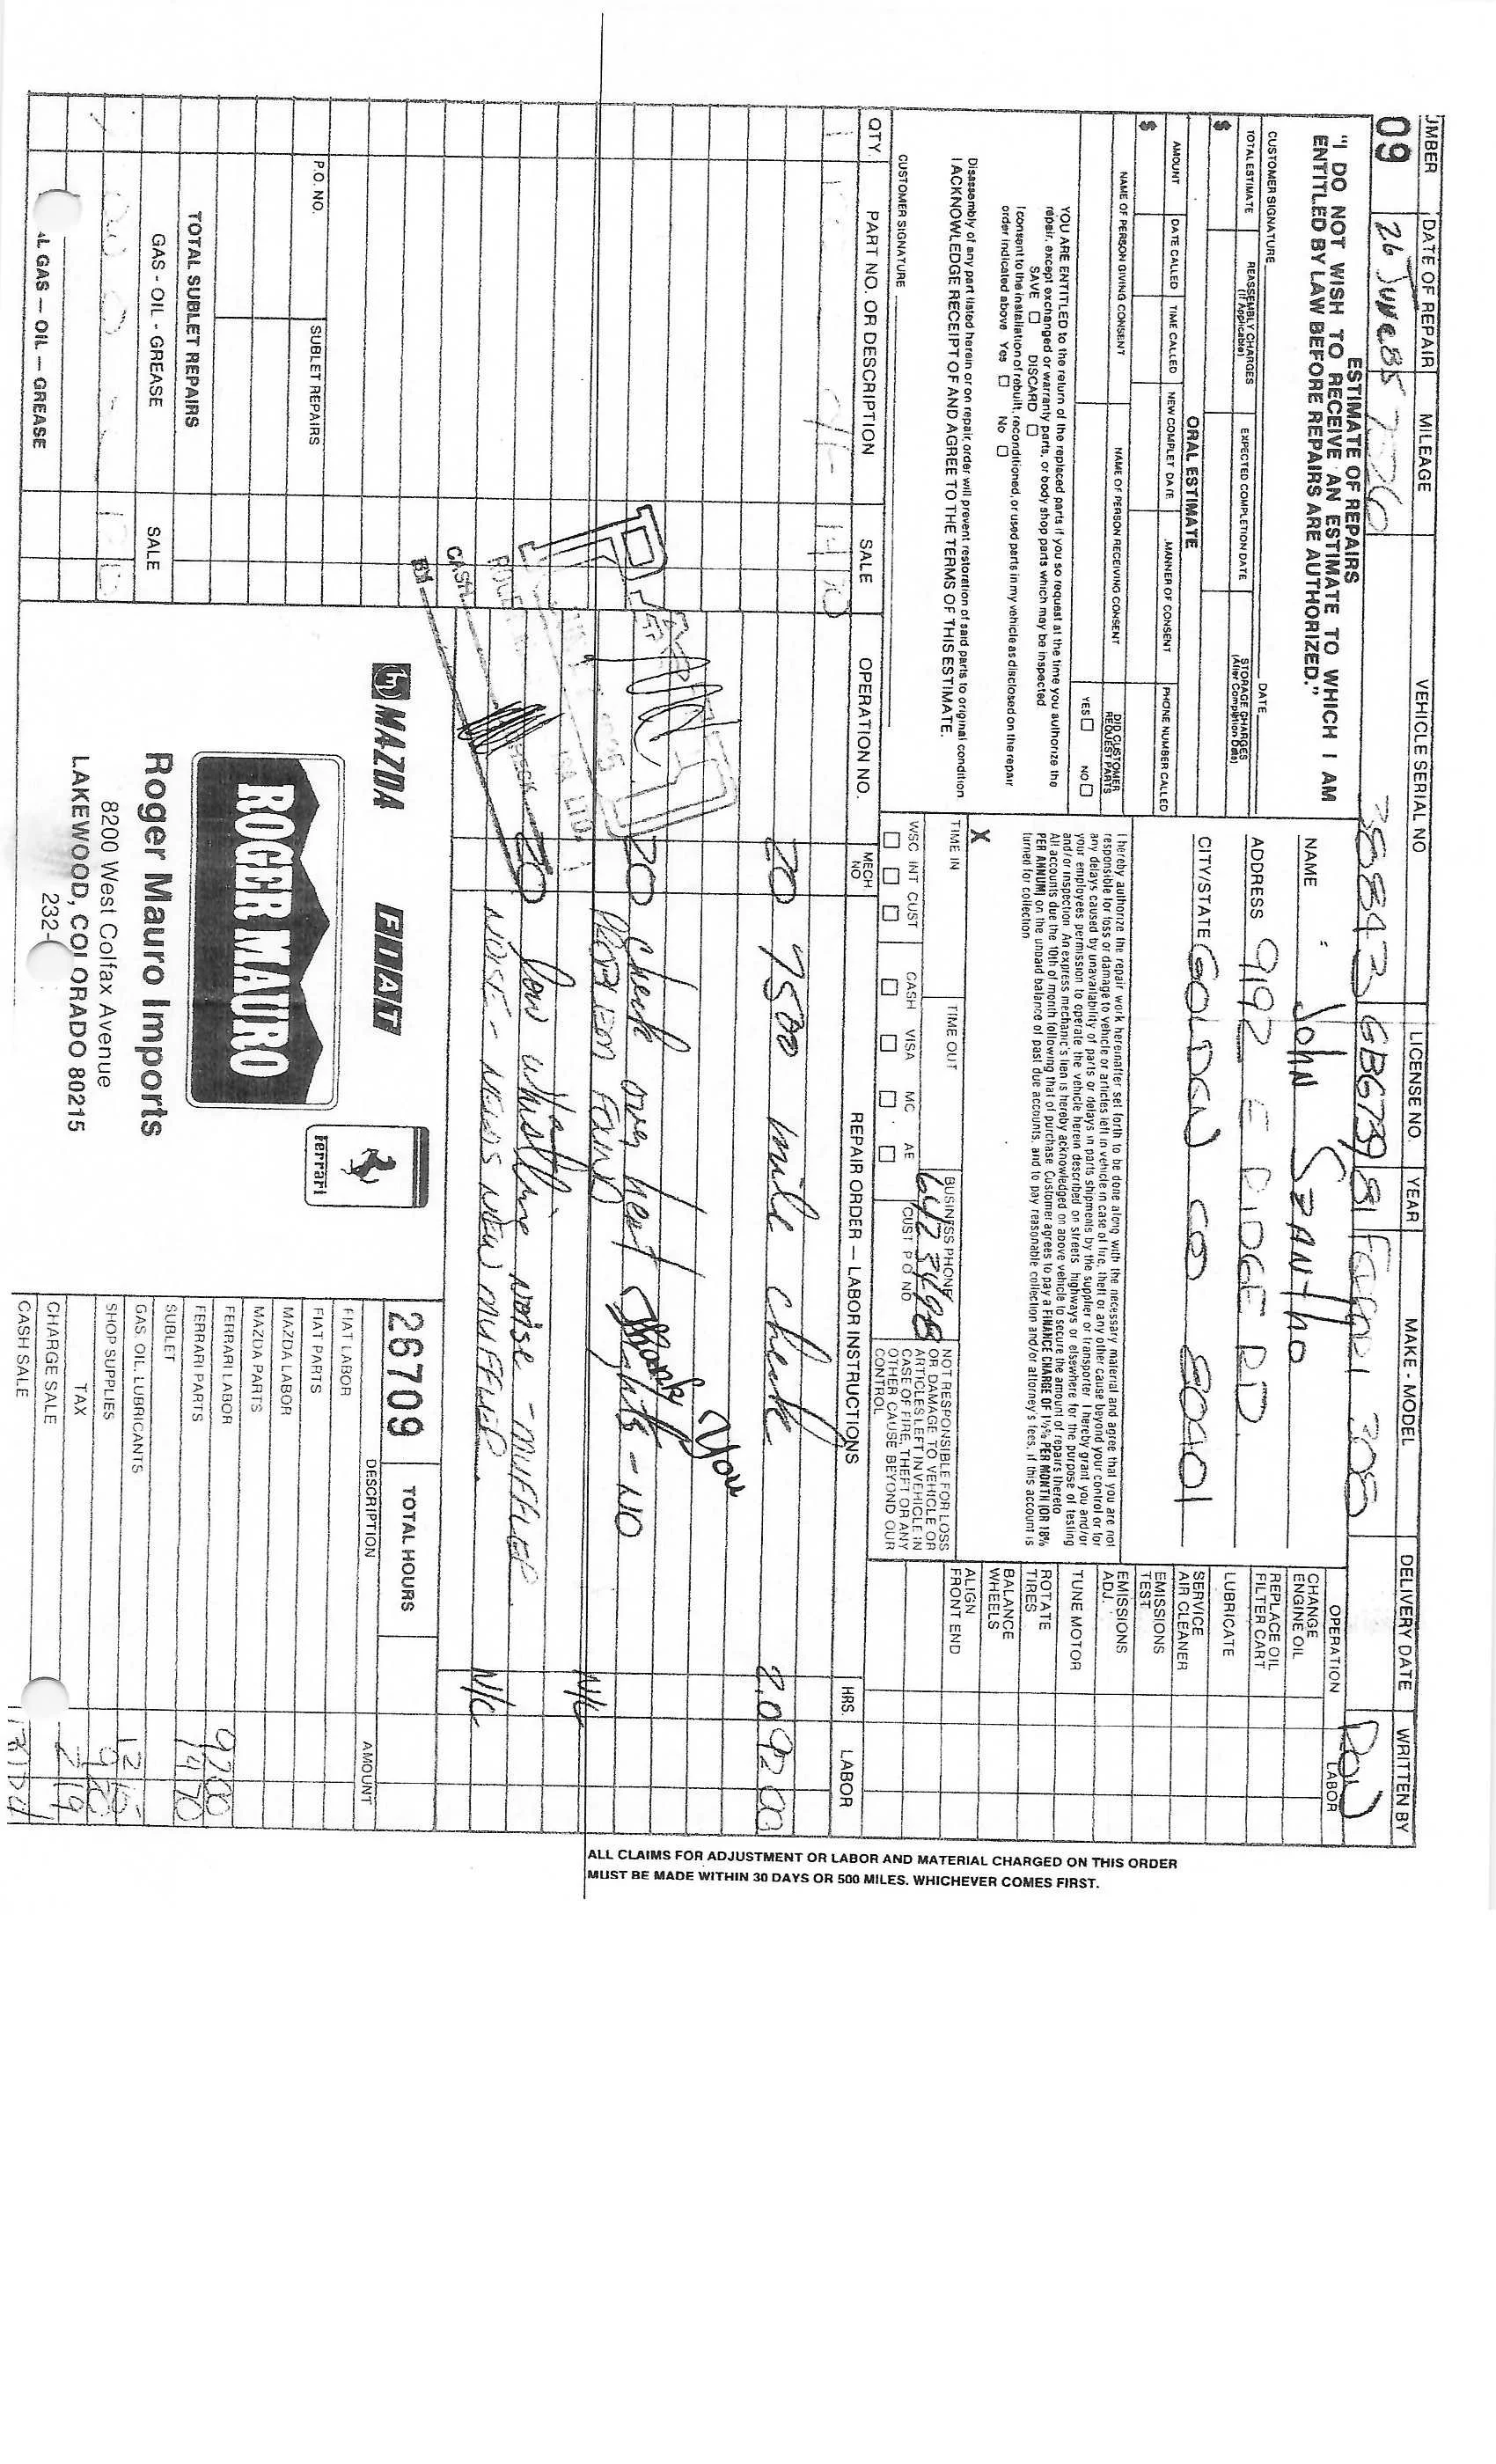 UMBER DATE OF REPAIR MILEAGE VEHICLE SERIAL NO LICENSE NO. YEAR MAKE - MODEL DELIVERY DATE WRITTEN BY
09 26 June 85 38843 GBG739 81 308
ESTIMATE OF REPAIRS
"I DO NOT WISH TO RECEIVE AN ESTIMATE TO WHICH I AM
ENTITLED BY LAW BEFORE REPAIRS ARE AUTHORIZED."
CUSTOMER SIGNATURE DATE
TOTAL ESTIMATE REASSEMBLY CHARGES (If Applicable) EXPECTED COMPLETION DATE STORAGE CHARGES (After Completion Date)
$
ORAL ESTIMATE
AMOUNT DATE CALLED TIME CALLED NEW COMPLET DATE MANNER OF CONSENT PHONE NUMBER CALLED
$
NAME OF PERSON GIVING CONSENT NAME OF PERSON RECEIVING CONSENT DID CUSTOMER REQUEST PARTS
YES NO
YOU ARE ENTITLED to the return of the replaced parts if you so request at the time you authorize the
repair, except exchanged or warranty parts, or body shop parts which may be inspected
SAVE DISCARD
I consent to the installation of rebuilt, reconditioned, or used parts in my vehicle as disclosed on the repair
order indicated above Yes No
Disassembly of any part listed herein or on repair order will prevent restoration of said parts to original condition
I ACKNOWLEDGE RECEIPT OF AND AGREE TO THE TERMS OF THIS ESTIMATE.
CUSTOMER SIGNATURE
NAME John Szantho
ADDRESS 9192
CITY/STATE GOLDEN CO
I hereby authorize the repair work hereinafter set forth to be done along with the necessary material and agree that you are not
responsible for loss or damage to vehicle or articles left in vehicle in case of fire, theft or any other cause beyond your control or for
any delays caused by unavailability of parts or delays in parts shipments by the supplier or transporter I hereby grant you and/or
your employees permission to operate the vehicle herein described on streets highways or elsewhere for the purpose of testing
and/or inspection An express mechanic's lien is hereby acknowledged on above vehicle to secure the amount of repairs thereto
All accounts due the 10th of month following that of purchase Customer agrees to pay a FINANCE CHARGE OF 1½% PER MONTH (OR 18%
PER ANNUM) on the unpaid balance of past due accounts, and to pay reasonable collection and/or attorney's fees, if this account is
turned for collection
X
TIME IN TIME OUT BUSINESS PHONE
642 3498
WSC INT CUST CASH VISA MC AE CUST P O NO
NOT RESPONSIBLE FOR LOSS
OR DAMAGE TO VEHICLE OR
ARTICLES LEFT IN VEHICLE IN
CASE OF FIRE, THEFT OR ANY
OTHER CAUSE BEYOND OUR
CONTROL
OPERATION LABOR
CHANGE ENGINE OIL
REPLACE OIL FILTER CART
LUBRICATE
SERVICE AIR CLEANER
EMISSIONS TEST
EMISSIONS ADJ.
TUNE MOTOR
ROTATE TIRES
BALANCE WHEELS
ALIGN FRONT END
QTY. PART NO. OR DESCRIPTION SALE OPERATION NO. MECH NO REPAIR ORDER — LABOR INSTRUCTIONS HRS. LABOR
20 7500 mile check 2.0 92 00
20 check over heat lights - NO
PROBLEM FOUND N/C
20 low whistling noise - MUFFLER
NOISE - NEEDS NEW MUFFLER. N/C
P.O. NO. SUBLET REPAIRS
TOTAL SUBLET REPAIRS
GAS - OIL - GREASE SALE
AL GAS — OIL — GREASE
MAZDA FIAT
ROGER MAURO
ferrari
Roger Mauro Imports
8200 West Colfax Avenue
LAKEWOOD, COLORADO 80215
232-
26709 TOTAL HOURS
DESCRIPTION AMOUNT
FIAT LABOR
FIAT PARTS
MAZDA LABOR
MAZDA PARTS
FERRARI LABOR 92 00
FERRARI PARTS 14 70
SUBLET
GAS, OIL, LUBRICANTS
SHOP SUPPLIES
TAX
CHARGE SALE
CASH SALE
ALL CLAIMS FOR ADJUSTMENT OR LABOR AND MATERIAL CHARGED ON THIS ORDER
MUST BE MADE WITHIN 30 DAYS OR 500 MILES. WHICHEVER COMES FIRST.